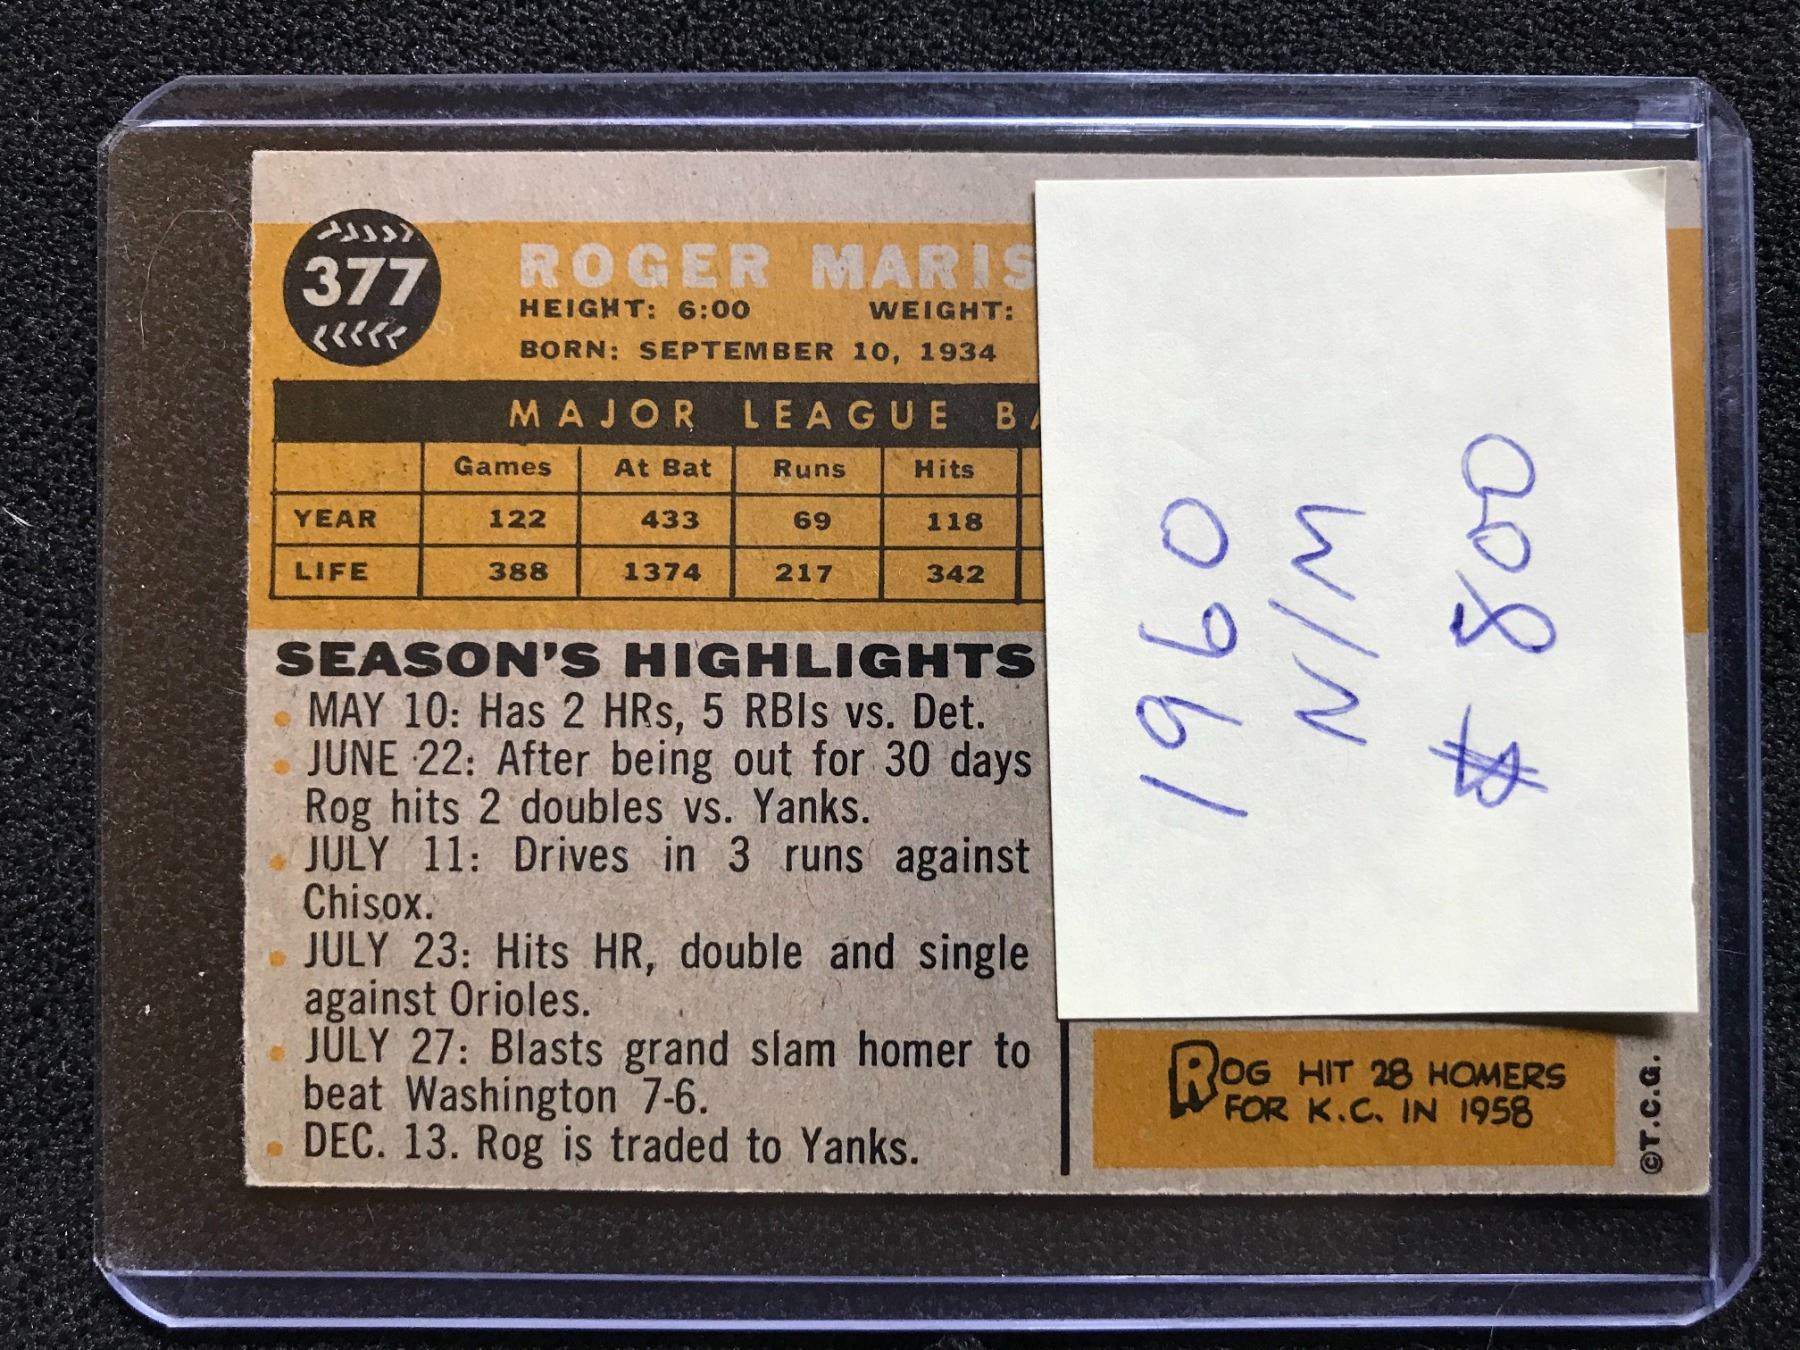 377
ROGER MARIS
HEIGHT: 6:00 WEIGHT:
BORN: SEPTEMBER 10, 1934
MAJOR LEAGUE BA
Games At Bat Runs Hits
YEAR 122 433 69 118
LIFE 388 1374 217 342
SEASON'S HIGHLIGHTS
• MAY 10: Has 2 HRs, 5 RBIs vs. Det.
• JUNE 22: After being out for 30 days
Rog hits 2 doubles vs. Yanks.
• JULY 11: Drives in 3 runs against
Chisox.
• JULY 23: Hits HR, double and single
against Orioles.
• JULY 27: Blasts grand slam homer to
beat Washington 7-6.
• DEC. 13. Rog is traded to Yanks.
1960
N/M
$ 800
ROG HIT 28 HOMERS
FOR K.C. IN 1958
©T.C.G.